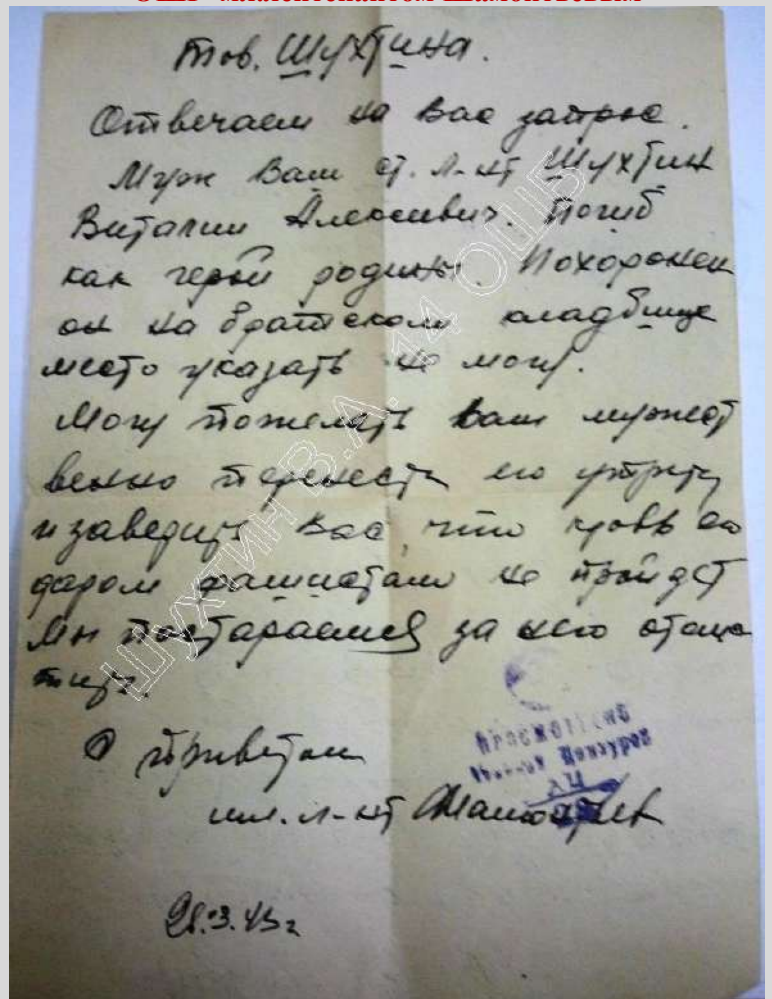 ОШБ младшим лейтенантом Шамонтьевым
тов. Шухтина.
Отвечаем на Вас запрос.
Муж Ваш ст. л-нт Шухтин
Виталий Алексеевич. Погиб
как герой родины. Похоронен
он на братском кладбище
место указать не могу.
Могу пожелать Вам мужест
венно перенести его утрату
и заверить Вас, что кровь его
даром фашистам не пройдет
Мы постараемся за него отомс
тить.
С приветом
мл. л-нт
28.3.43г
ПРОСМОТРЕНО
Военной Цензурой
ШУХТИН В.А. 14 ОШБ